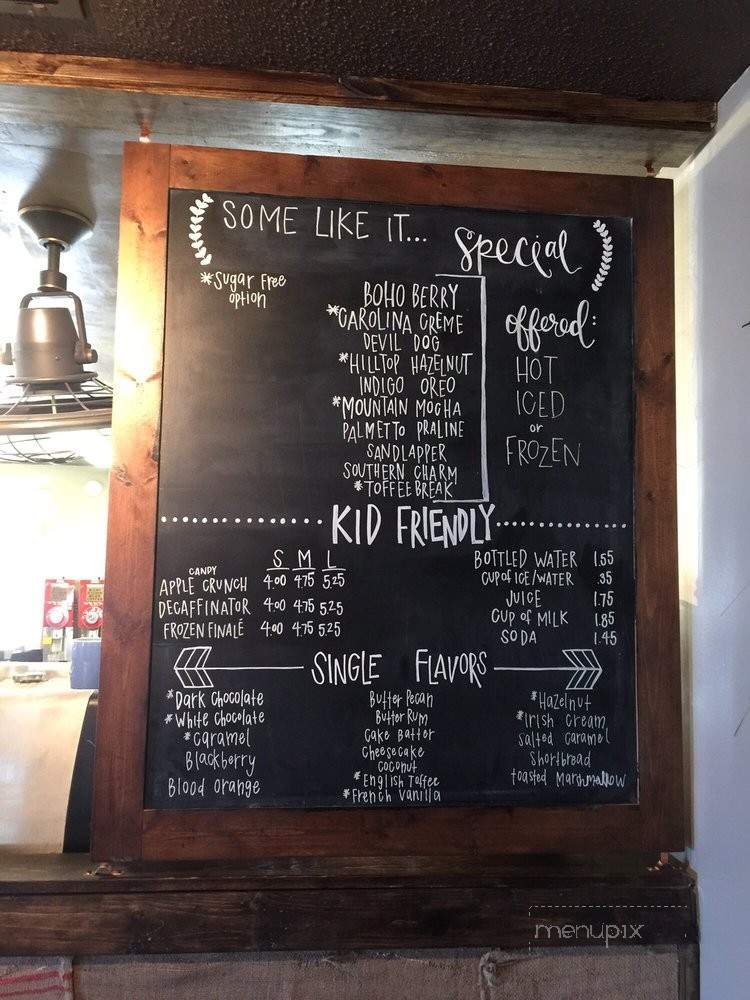 SOME LIKE IT... Special
*Sugar Free
option
BOHO BERRY
*CAROLINA CREME
DEVIL DOG
*HILLTOP HAZELNUT
INDIGO OREO
*MOUNTAIN MOCHA
PALMETTO PRALINE
SANDLAPPER
SOUTHERN CHARM
*TOFFEE BREAK
offered:
HOT
ICED
or
FROZEN
KID FRIENDLY
S M L
CANDY
APPLE CRUNCH 4.00 4.75 5.25
DECAFFINATOR 4.00 4.75 5.25
FROZEN FINALÉ 4.00 4.75 5.25
BOTTLED WATER 1.65
CUP of ICE/WATER .35
JUICE 1.75
CUP of MILK 1.85
SODA 1.45
SINGLE FLAVORS
*Dark Chocolate
*White Chocolate
*caramel
Blackberry
Blood Orange
Butter Pecan
Butter Rum
Cake Batter
Cheesecake
Coconut
*English Toffee
*French Vanilla
*Hazelnut
*Irish Cream
Salted Caramel
Shortbread
Toasted Marshmallow
menupix